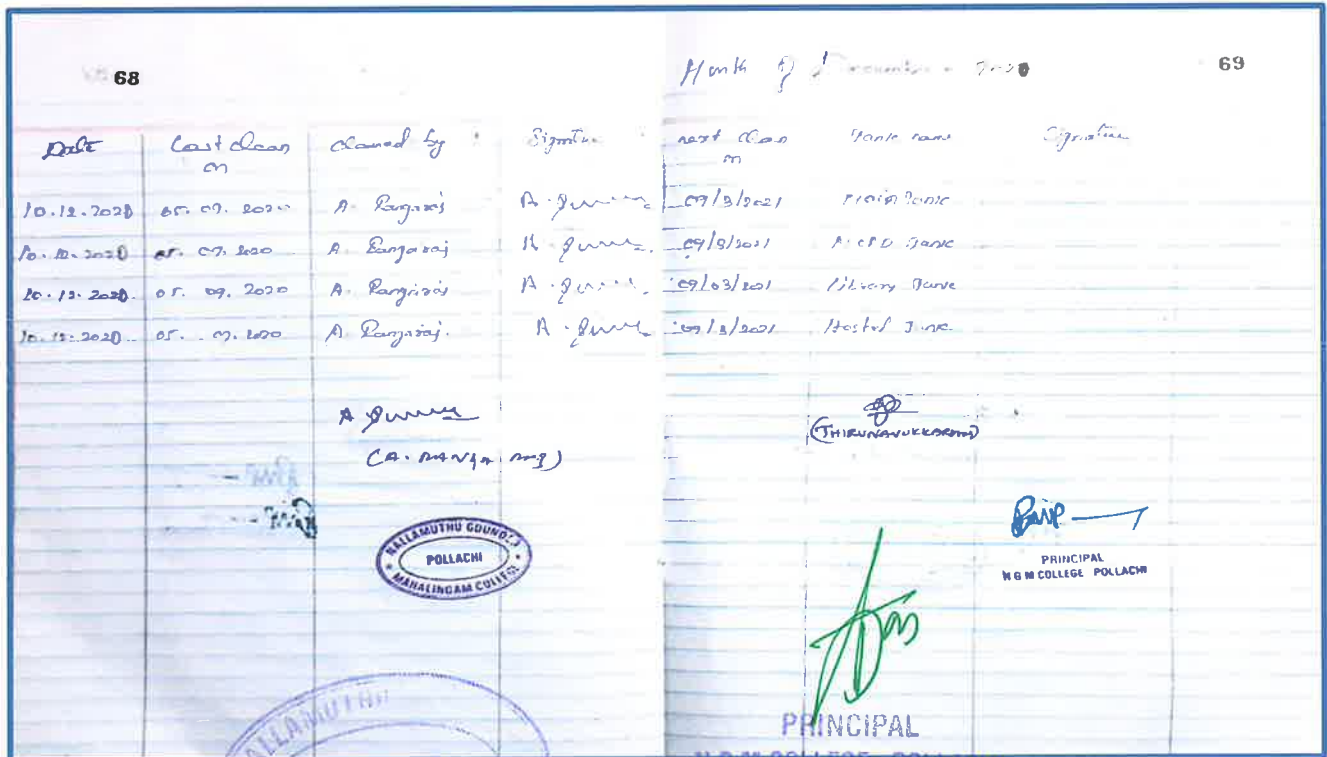 68
Month of December 2020 69
Date Last clean on cleaned by Signature next clean on Tank name Signature
10.12.2020 05.09.2020 A. Rangaraj 09/3/2021 Main Tank
10.12.2020 05.09.2020 A. Rangaraj 09/3/2021 Tank
10.12.2020 05.09.2020 A. Rangaraj 09/03/2021 Library Tank
10.12.2020 05.09.2020 A. Rangaraj. 09/3/2021 Hostel Tank
(THIRUNAVUKKARASU)
(A. RANGARAJ)
NALLAMUTHU GOUNDER
POLLACHI
MAHALINGAM COLLEGE
PRINCIPAL
N G M COLLEGE POLLACHI
ALLAMUTHU
PRINCIPAL